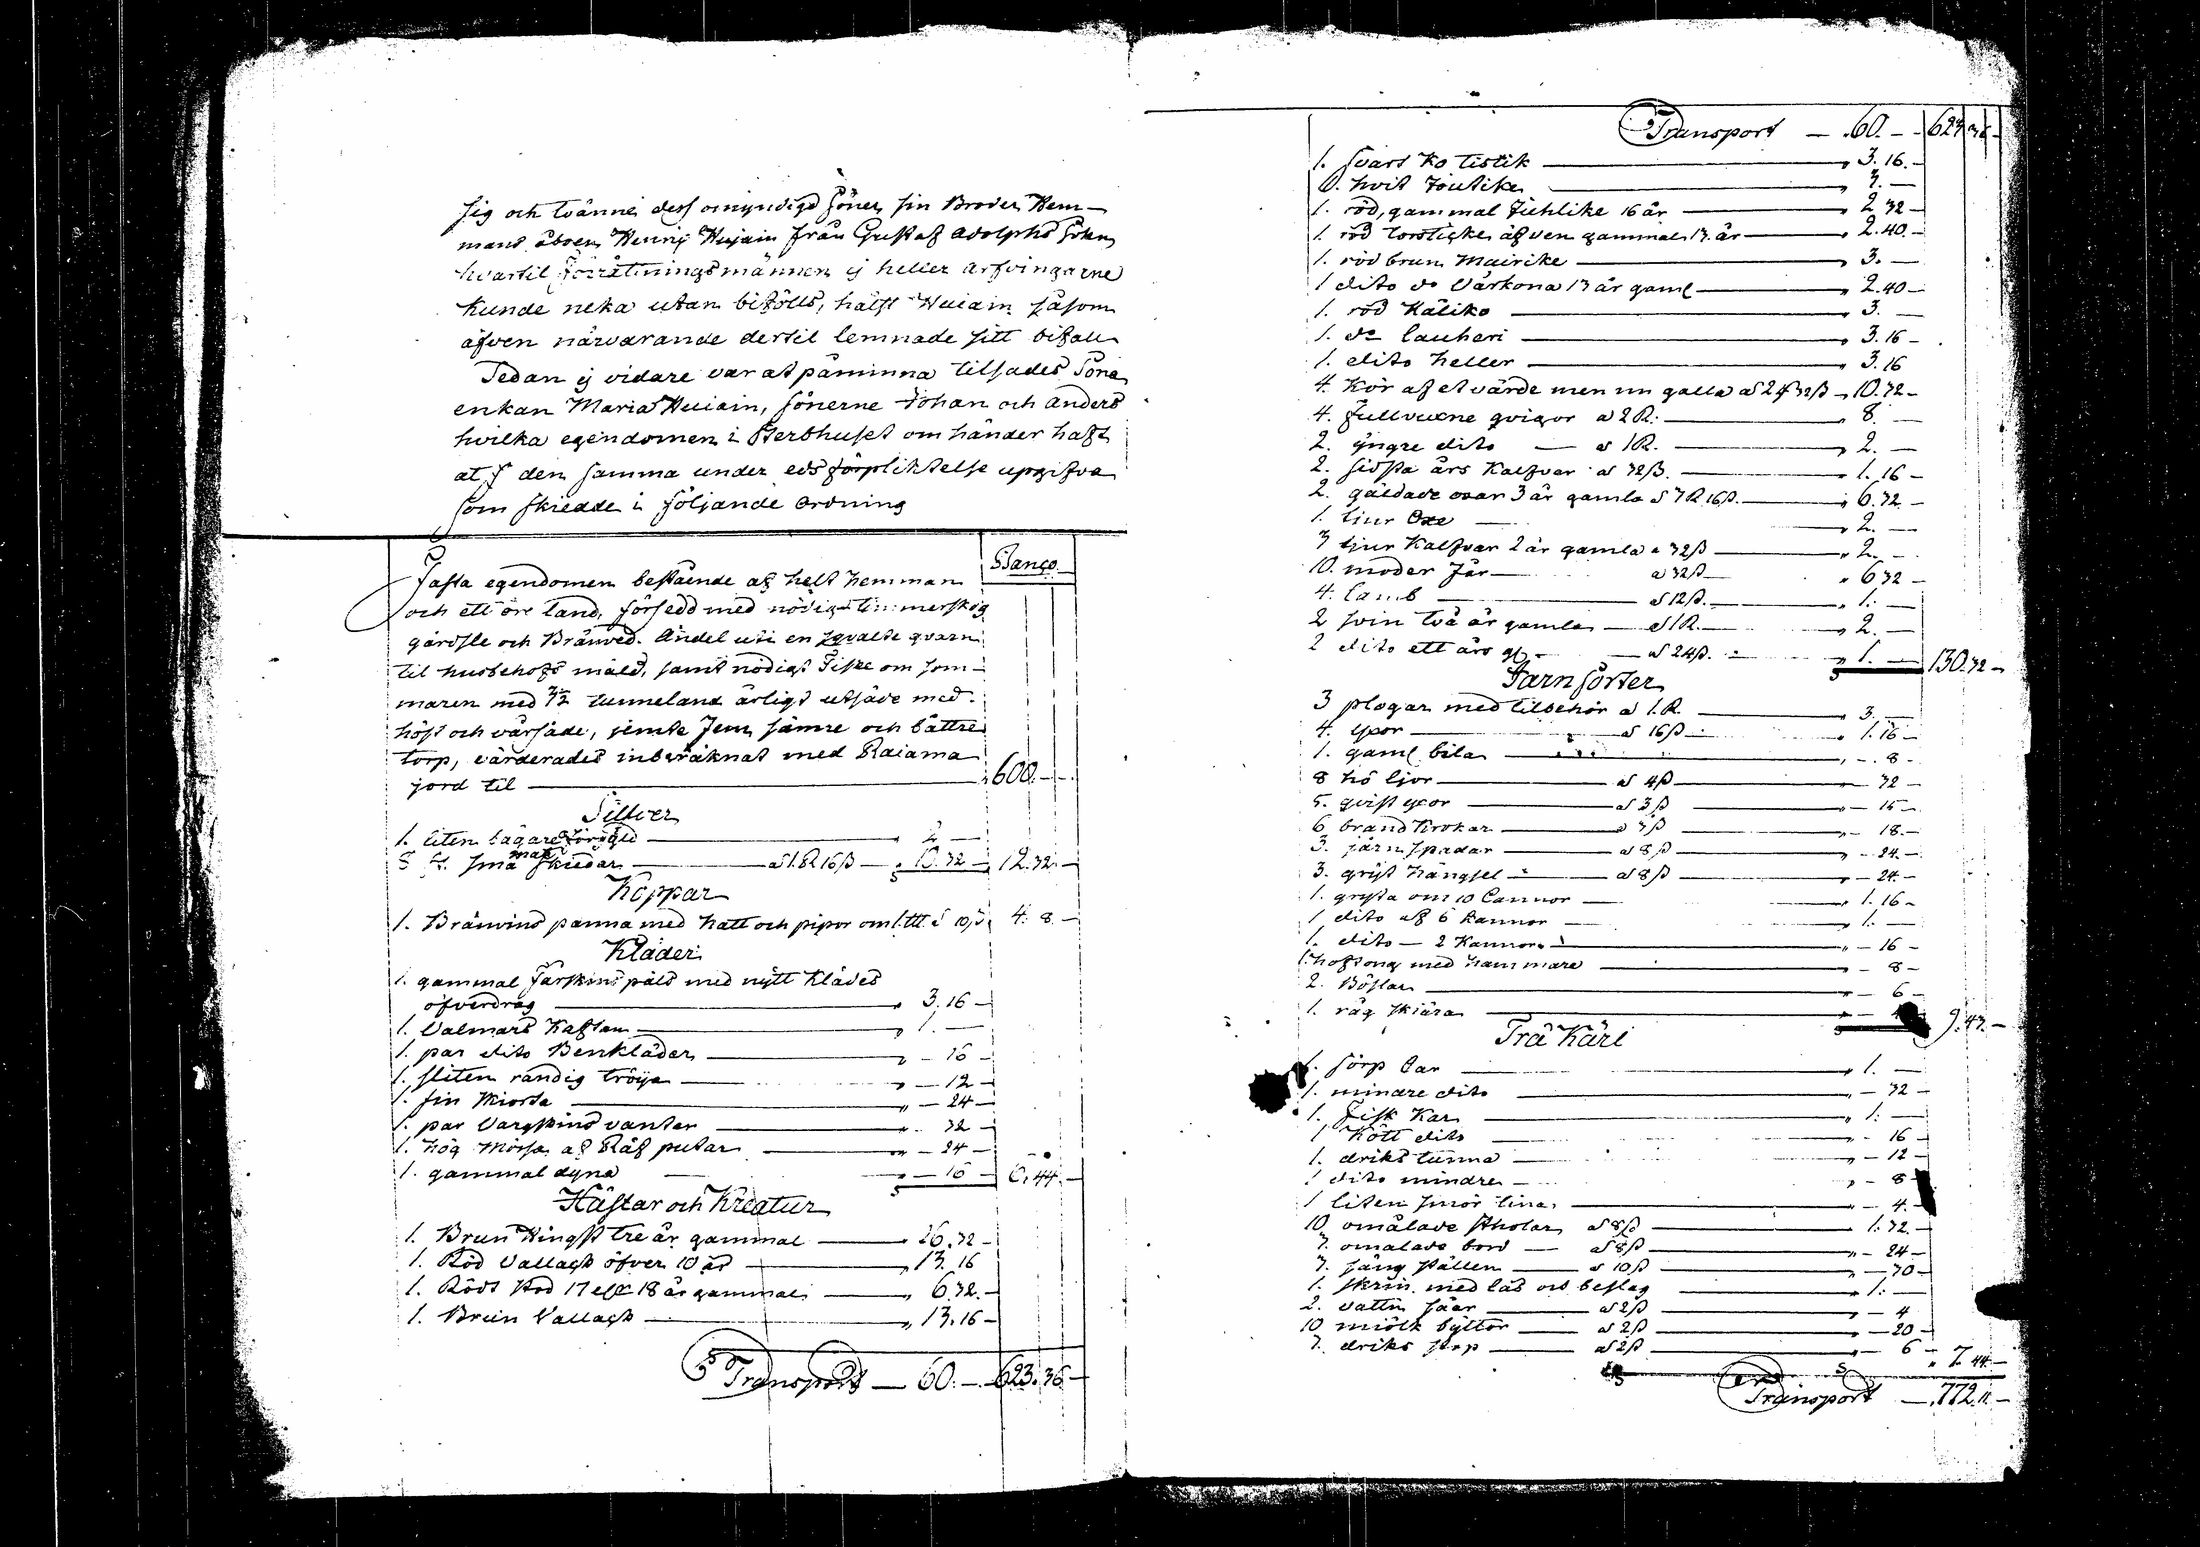 sig och tvänne dess omyndige söner, sin Broder Hem-
mans åboen Henrij Huiain från Gustaf Adolphs Sokn,
hvartil förrättningsmännen ej heller arfvingarne
kunde neka utan biföllo, hälst Huiain såsom
äfven närvarande dertil lemnade sitt bifall
Sedan ej vidare var at påminna tilsades Sone
enkan Maria Huiain, sönerne Johan och Anders
hvilka egendomen i Sterbhuset om händer haft
at den samma under eds förpliktelse upgifva
som skiedde i följande Ordning
Banco
Fasta egendomen bestående af helt hemman
och ett öre land, försedd med nödig timmerskog
gärdsle och Bränved. Andel uti en sqvalte qvarn
til husbehofs mäld, samt nödigt Fiske om som-
maren med 3½ tunneland årligt utsäde med
höst och vårsäde, jemte Fem sämre och bättre
torp, värderades inberäknat med Raiama
jord til — 600. —
Silfver
1. liten bägare förgyld — 2 —
8 st. små mat Skiedar — a 1 R 16 ß — 10.32 — 12.32. —
Koppar
1. Bränvins panna med hatt och pipor om 4. 8. —
Kläder
1. gammal Fårskins päls med nytt Klädes
öfverdrag — 3.16 —
1. Valmars Kaftan — 1. —
1. par dito Benkläder — 16 —
1. sliten randig tröija — 12 —
1. fin skiorta — 24 —
1. par Vargskins vantar — 32 —
1. hög Mössa af Räf putar — 24 —
1. gammal dyna — 16 — 6.44. —
Hästar och Kreatur
1. Brun Hingst tre år gammal — 26.32 —
1. Röd Vallagk öfver 10 år — 13.16
1. Rödt Stod 17 eller 18 år gammal — 6.32. —
1. Brun Vallagk — 13.16 —
Transport — 60. — 623.36 —
Transport — 60. — 623.36 —
1. svart Ko tistik — 3.16. —
1. hvit Joutike — 3. —
1. röd, gammal 16 år — 2.32 —
1. röd torsticke äfven gammal 13 år — 2.40 —
1. röd brun Mairike — 3. —
1 dito do Värkona 13 år gaml — 2.40 —
1. röd Käliko — 3. —
1. do lauheri — 3.16 —
1. dito heller — 3.16
4. Kor af et värde men nu galla a 2 R 32 ß — 10.32 —
4. fullvuxne qvigor a 2 R. — 8. —
2. yngre dito — a 1 R. — 2. —
2. sidsta års Kalfvar a 32 ß. — 1.16 —
2. gäldade oxar 3 år gamla a 3 R 16 ß. — 6.32. —
1. tjur Oxe — 2. —
3 tjur Kalfvar 2 år gamla a 32 ß — 2. —
10. moder Får — a 32 ß — 6 32 —
4. lamb — a 12 ß. — 1. —
2 svin två år gamla — a 1 R. — 2. —
2 dito ett års — a 24 ß. — 1. — 130.32 —
Jarn sorter
3 plogar med tilbehör a 1 R. — 3. —
4. yxor — a 16 ß — 1.16 —
1. gaml bila — 8 —
8 hö ljor — a 4 ß — 32 —
5. qvist yxor — a 3 ß — 15 —
6 brand krokar — a 3 ß — 18. —
3. järn spadar — a 8 ß — 24. —
3. gryt hängsel — a 8 ß — 24 —
1. gryta om 10 Cannor — 1.16 —
1 dito af 6 Kannor — 1. —
1. dito — 2 Kannor — 16 —
1. hoftong med hammare — 8 —
2. Böslar — 6 —
1. råg skiära — 9.43. —
Trä Kärl
1. sörp Car — 1. —
1. mindre dito — 32 —
1. Fisk Kar — 1. —
1 Kött dito — 16 —
1. driks tunna — 12 —
1 dito mindre — 8 —
1 liten smör tina — 4. —
10 omålade Stolar a 8 ß — 1.32. —
3. omålade bord — a 8 ß — 24 —
3. säng ställen — a 10 ß — 30 —
1. skrin med lås och beslag — 1. —
2. vattu säar — a 2 ß — 4
10 miölk byttor — a 2 ß — 20 —
3. driks stop — a 2 ß — 6 — 7.44 —
Transport — 772.11. —